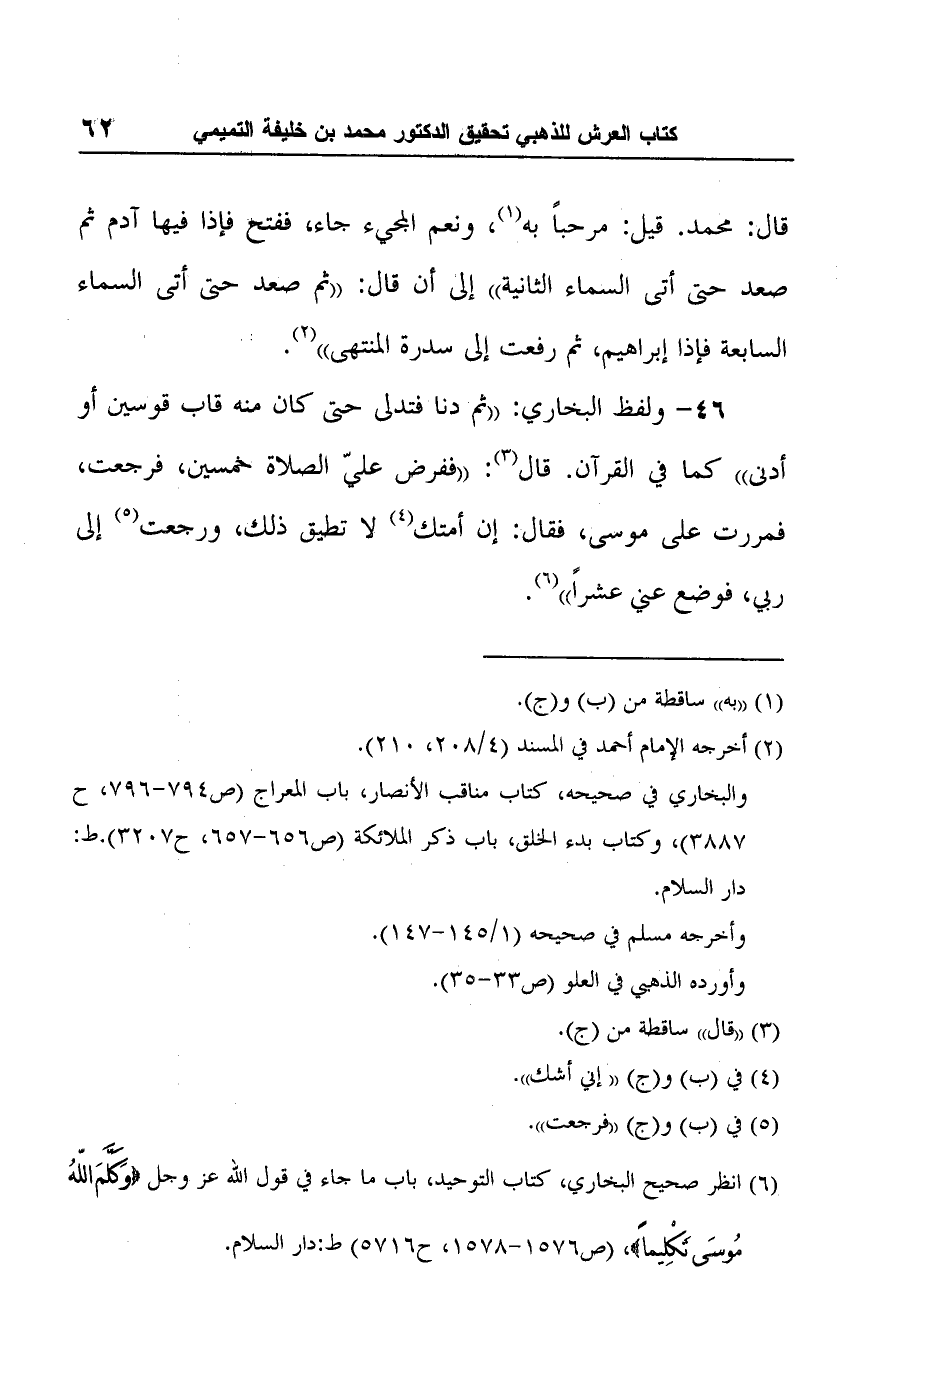 كتاب العرش للذهبي تحقيق الدكتور محمد بن خليفة التميمي ٦٢
قال: محمد. قيل: مرحباً به(١)، ونعم المجيء جاء، ففتح فإذا فيها آدم ثم
صعد حتى أتى السماء الثانية» إلى أن قال: «ثم صعد حتى أتى السماء
السابعة فإذا إبراهيم، ثم رفعت إلى سدرة المنتهى»(٢).
٤٦- ولفظ البخاري: «ثم دنا فتدلى حتى كان منه قاب قوسين أو
أدنى» كما في القرآن. قال(٣): «ففرض عليّ الصلاة خمسين، فرجعت،
فمررت على موسى، فقال: إن أمتك(٤) لا تطيق ذلك، ورجعت(٥) إلى
ربي، فوضع عني عشراً»(٦).
(١) «به» ساقطة من (ب) و(ج).
(٢) أخرجه الإمام أحمد في المسند (٢٠٨/٤، ٢١٠).
والبخاري في صحيحه، كتاب مناقب الأنصار، باب المعراج (ص٧٩٤-٧٩٦، ح
٣٨٨٧)، وكتاب بدء الخلق، باب ذكر الملائكة (ص٦٥٦-٦٥٧، ح٣٢٠٧).ط:
دار السلام.
وأخرجه مسلم في صحيحه (١٤٥/١-١٤٧).
وأورده الذهبي في العلو (ص٣٣-٣٥).
(٣) «قال» ساقطة من (ج).
(٤) في (ب) و(ج) « إني أشك».
(٥) في (ب) و(ج) «فرجعت».
(٦) انظر صحيح البخاري، كتاب التوحيد، باب ما جاء في قول الله عز وجل ﴿وَكَلَّمَ اللَّهُ
مُوسَى تَكْلِيماً﴾، (ص١٥٧٦-١٥٧٨، ح٥٧١٦) ط:دار السلام.